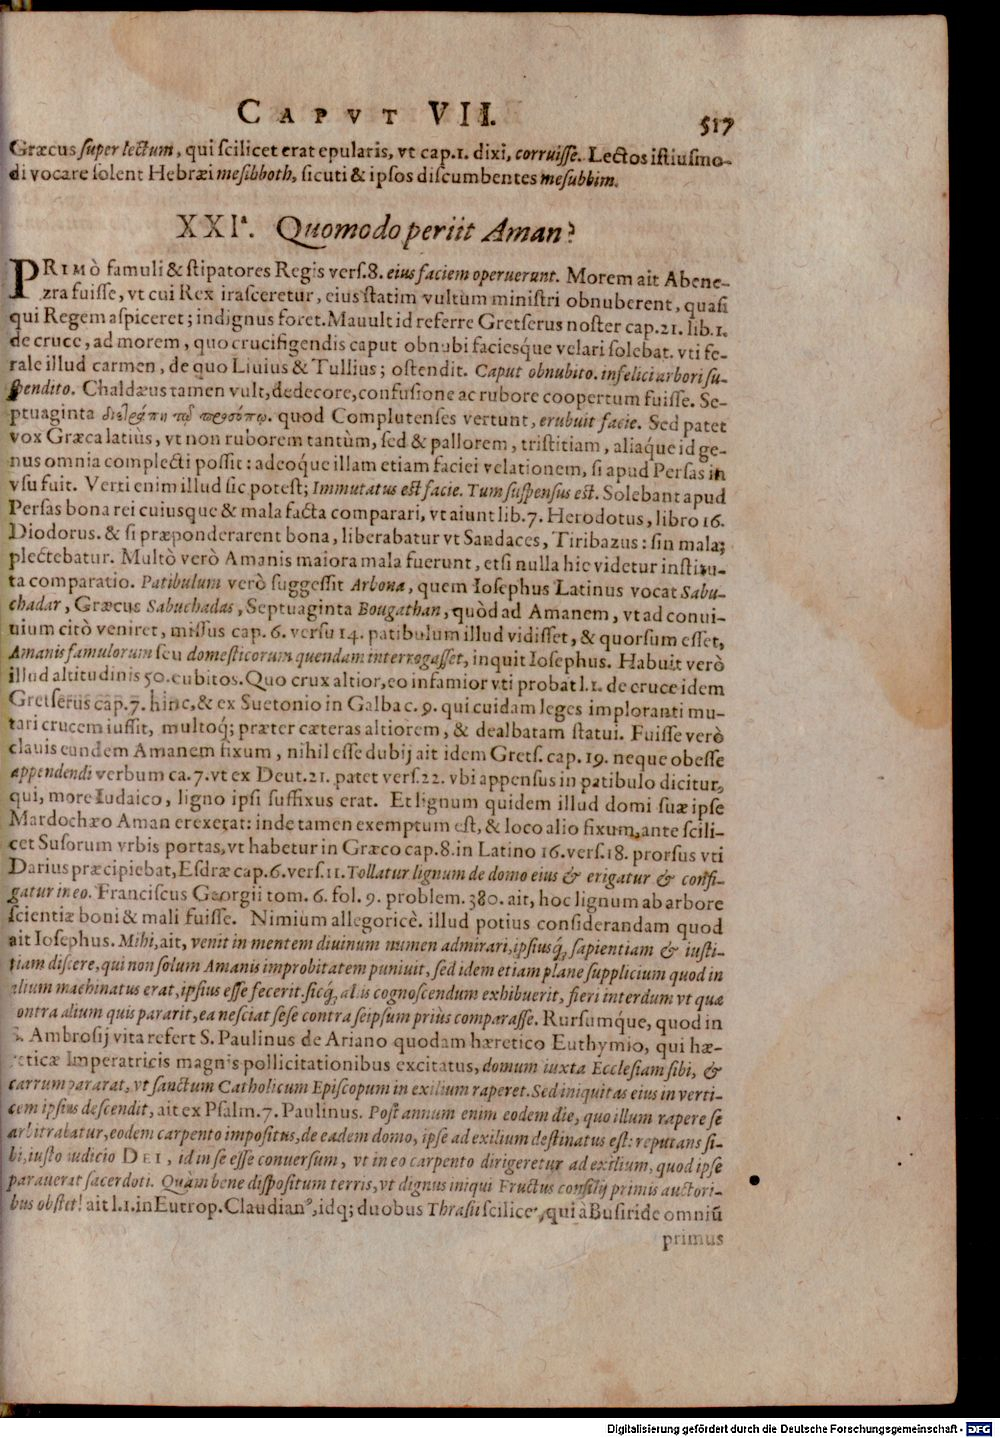 CAPVT VII. 517
Græcus super lectum, qui scilicet erat epularis, vt cap.1. dixi, corruisse. Lectos istiusmo-
di vocare solent Hebræi mesibboth, sicuti & ipsos discumbentes mesubbim.
XXIª. Quomodo periit Aman?
PRIMÒ famuli & stipatores Regis vers.8. eius faciem operuerunt. Morem ait Abene-
zra fuisse, vt cui Rex irasceretur, eius statim vultum ministri obnuberent, quasi
qui Regem aspiceret; indignus foret. Mauult id referre Gretserus noster cap.21. lib.1.
de cruce, ad morem, quo crucifigendis caput obnubi faciesq́ue velari solebat. vti fe-
rale illud carmen, de quo Liuius & Tullius; ostendit. Caput obnubito. infelici arbori su-
spendito. Chaldæus tamen vult, dedecore, confusione ac rubore coopertum fuisse. Se-
ptuaginta διετράπη τῷ προσώπῳ. quod Complutenses vertunt, erubuit facie. Sed patet
vox Græca latiùs, vt non ruborem tantùm, sed & pallorem, tristitiam, aliaq́ue id ge-
nus omnia complecti possit: adeoque illam etiam faciei velationem, si apud Persas in
vsu fuit. Verti enim illud sic potest; Immutatus est facie. Tum suspensus est. Solebant apud
Persas bona rei cuiusque & mala facta comparari, vt aiunt lib.7. Herodotus, libro 16.
Diodorus. & si præponderarent bona, liberabatur vt Sandaces, Tiribazus: sin mala;
plectebatur. Multò verò Amanis maiora mala fuerunt, etsi nulla hic videtur institu-
ta comparatio. Patibulum verò suggessit Arbona, quem Iosephus Latinus vocat Sabu-
chadar, Græcus Sabuchadas, Septuaginta Bougathan, quòd ad Amanem, vt ad conui-
nium citò veniret, missus cap. 6. versu 14. patibulum illud vidisset, & quorsum esset,
Amanis famulorum seu domesticorum quendam interrogasset, inquit Iosephus. Habuit verò
illud altitudinis 50. cubitos. Quo crux altior, eo infamior vti probat l.1. de cruce idem
Gretserus cap.7. hinc, & ex Suetonio in Galba c. 9. qui cuidam leges imploranti mu-
tari crucem iussit, multoq; præter cæteras altiorem, & dealbatam statui. Fuisse verò
clauis eundem Amanem fixum, nihil esse dubij ait idem Grets. cap. 19. neque obesse
appendendi verbum ca.7. vt ex Deut.21. patet vers.22. vbi appensus in patibulo dicitur,
qui, more Iudaico, ligno ipsi suffixus erat. Et lignum quidem illud domi suæ ipse
Mardochæo Aman erexerat: inde tamen exemptum est, & loco alio fixum, ante scili-
cet Susorum vrbis portas, vt habetur in Græco cap.8. in Latino 16. vers.18. prorsus vti
Darius præcipiebat, Esdræ cap.6. vers.11. Tollatur lignum de domo eius & erigatur & confi-
gatur in eo. Franciscus Georgii tom. 6. fol. 9. problem. 380. ait, hoc lignum ab arbore
scientiæ boni & mali fuisse. Nimium allegoricè. illud potius considerandam quod
ait Iosephus. Mihi, ait, venit in mentem diuinum numen admirari, ipsiusq́; sapientiam & iusti-
tiam discere, qui non solum Amanis improbitatem puniuit, sed idem etiam plane supplicium quod in
alium machinatus erat, ipsius esse fecerit. sicq́; aliis cognoscendum exhibuerit, fieri interdum vt quæ
ontra alium quis pararit, ea nesciat sese contra seipsum priùs comparasse. Rursumq́ue, quod in
S. Ambrosij vita refert S. Paulinus de Ariano quodam hæretico Euthymio, qui hæ-
reticæ Imperatricis magnis pollicitationibus excitatus, domum iuxta Ecclesiam sibi, &
carrum pararat, vt sanctum Catholicum Episcopum in exilium raperet. Sed iniquitas eius in verti-
cem ipsius descendit, ait ex Psalm.7. Paulinus. Post annum enim eodem die, quo illum rapere se
arbitrabatur, eodem carpento impositus, de eadem domo, ipse ad exilium destinatus est: reputans si-
bi, iusto iudicio DEI, id in se esse conuersum, vt in eo carpento dirigeretur ad exilium, quod ipse
parauerat sacerdoti. Quàm bene dispositum terris, vt dignus iniqui Fructus consilij primis auctori-
bus obstet! ait l.1. in Eutrop. Claudianꝰ, idq; duobus Thrasii scilicet, qui à Busiride omniū
primus
Digitalisierung gefördert durch die Deutsche Forschungsgemeinschaft - DFG